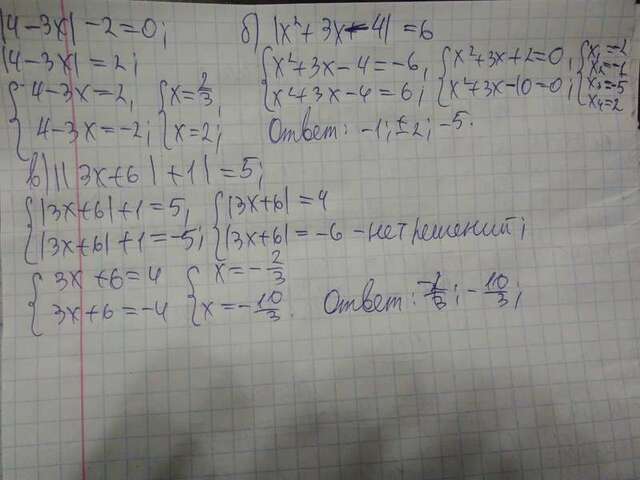 |4-3x|-2=0;
|4-3x|=2;
{4-3x=2, {x=2/3,
4-3x=-2; x=2;
б) |x²+3x-4|=6
{x²+3x-4=-6, {x²+3x+2=0, {x₁=-2
x²+3x-4=6; x²+3x-10=0; x₂=-1
x₃=-5
x₄=2
Ответ: -1; ±2; -5.
в) ||3x+6|+1|=5;
{|3x+6|+1=5, {|3x+6|=4
|3x+6|+1=-5; |3x+6|=-6 - нет решений;
{3x+6=4 {x=-2/3
3x+6=-4 x=-10/3.
Ответ: -2/3; -10/3;